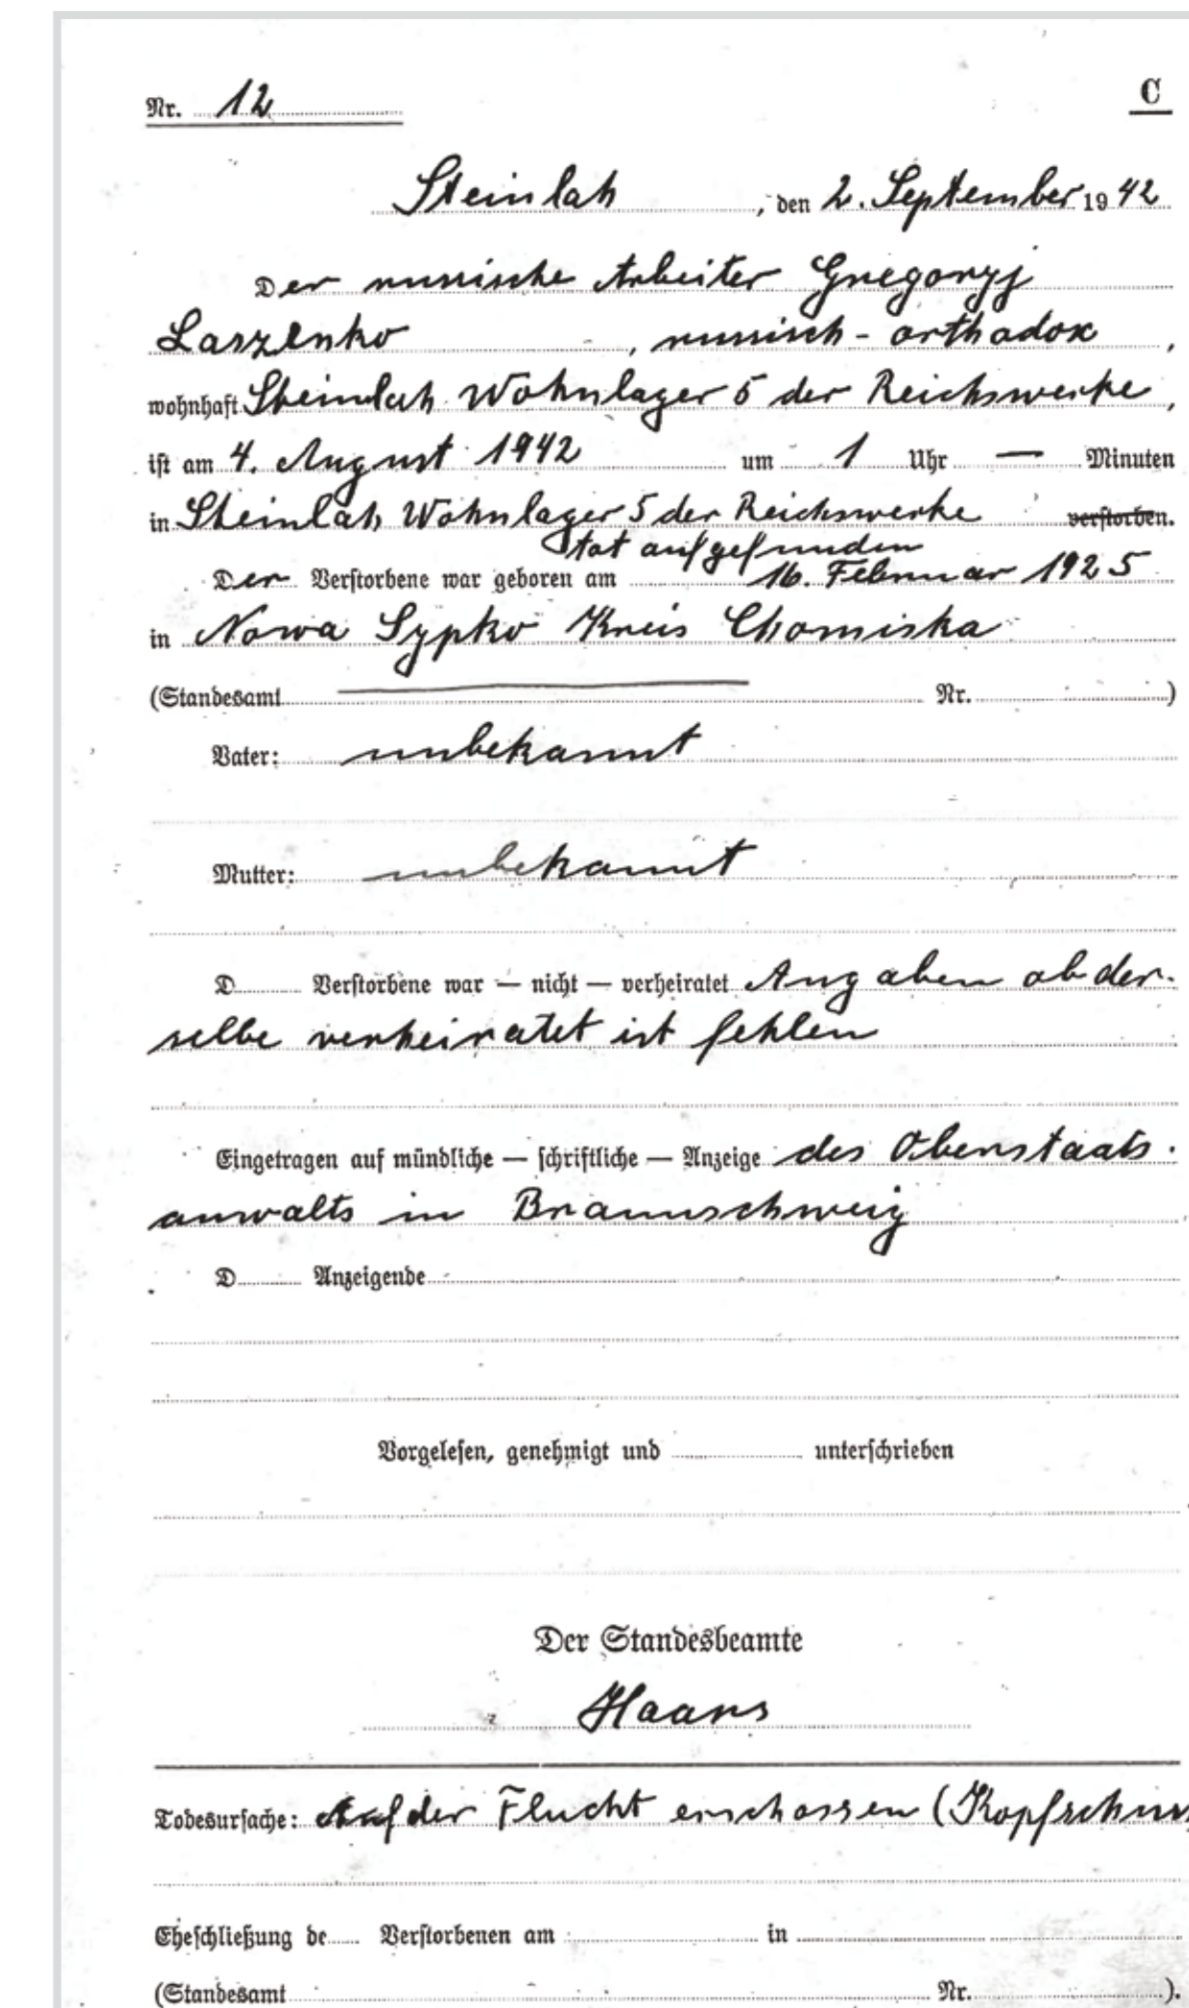 Nr. 12
C
Steinlah, den 2. September 1942
Der russische Arbeiter Gregoryj
Laszenko, russisch-orthodox,
wohnhaft Steinlah Wohnlager 5 der Reichswerke,
ist am 4. August 1942 um 1 Uhr — Minuten
in Steinlah, Wohnlager 5 der Reichswerke verstorben.
tot aufgefunden
Der Verstorbene war geboren am 16. Februar 1925
in Nowa Sypko Kreis Chomiska
(Standesamt Nr. )
Vater: unbekannt
Mutter: unbekannt
D Verstorbene war — nicht — verheiratet Angaben ob der-
selbe verheiratet ist fehlen
Eingetragen auf mündliche — schriftliche — Anzeige des Oberstaats-
anwalts in Braunschweig
D Anzeigende
Vorgelesen, genehmigt und unterschrieben
Der Standesbeamte
Haars
Todesursache: Auf der Flucht erschossen (Kopfschuss
Eheschließung de Verstorbenen am in
(Standesamt Nr. ).